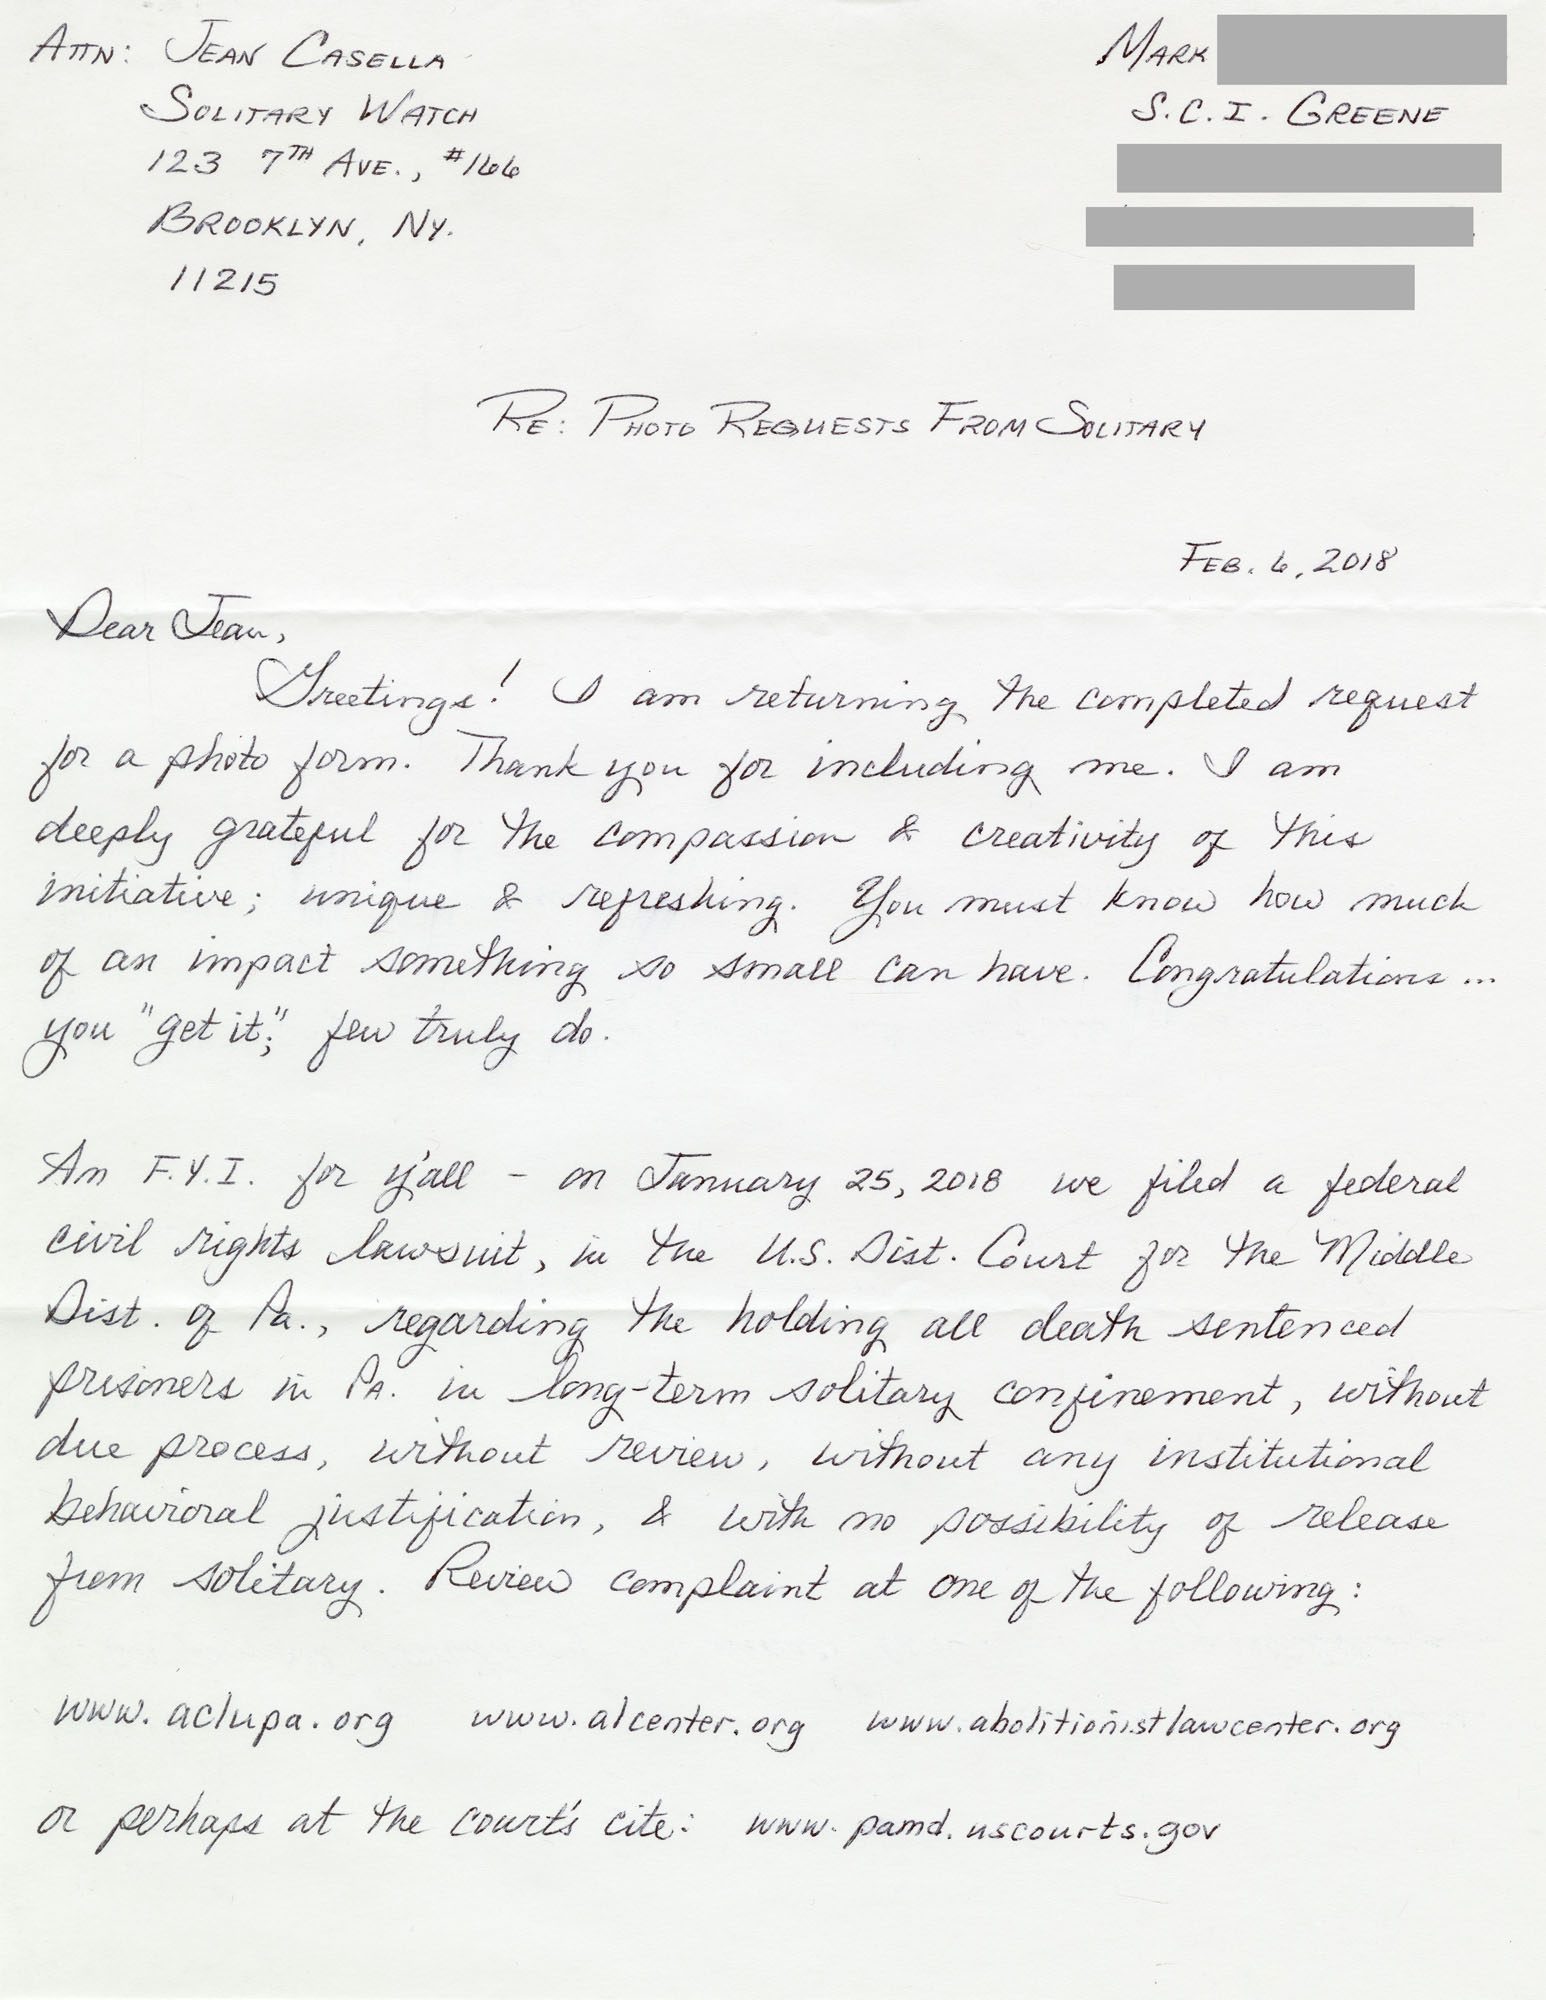 Attn: Jean Casella
Solitary Watch
123 7th Ave., #166
Brooklyn, Ny.
11215
Mark
S.C.I. Greene
Re: Photo Requests From Solitary
Feb. 6, 2018
Dear Jean,
Greetings! I am returning the completed request
for a photo form. Thank you for including me. I am
deeply grateful for the compassion & creativity of this
initiative; unique & refreshing. You must know how much
of an impact something so small can have. Congratulations...
you "get it;" few truly do.
An F.Y.I. for y'all - on January 25, 2018 we filed a federal
civil rights lawsuit, in the U.S. Dist. Court for the Middle
Dist. of Pa., regarding the holding all death sentenced
prisoners in Pa. in long-term solitary confinement, without
due process, without review, without any institutional
behavioral justification, & with no possibility of release
from solitary. Review complaint at one of the following:
www.aclupa.org www.alcenter.org www.abolitionistlawcenter.org
or perhaps at the court's cite: www.pamd.uscourts.gov